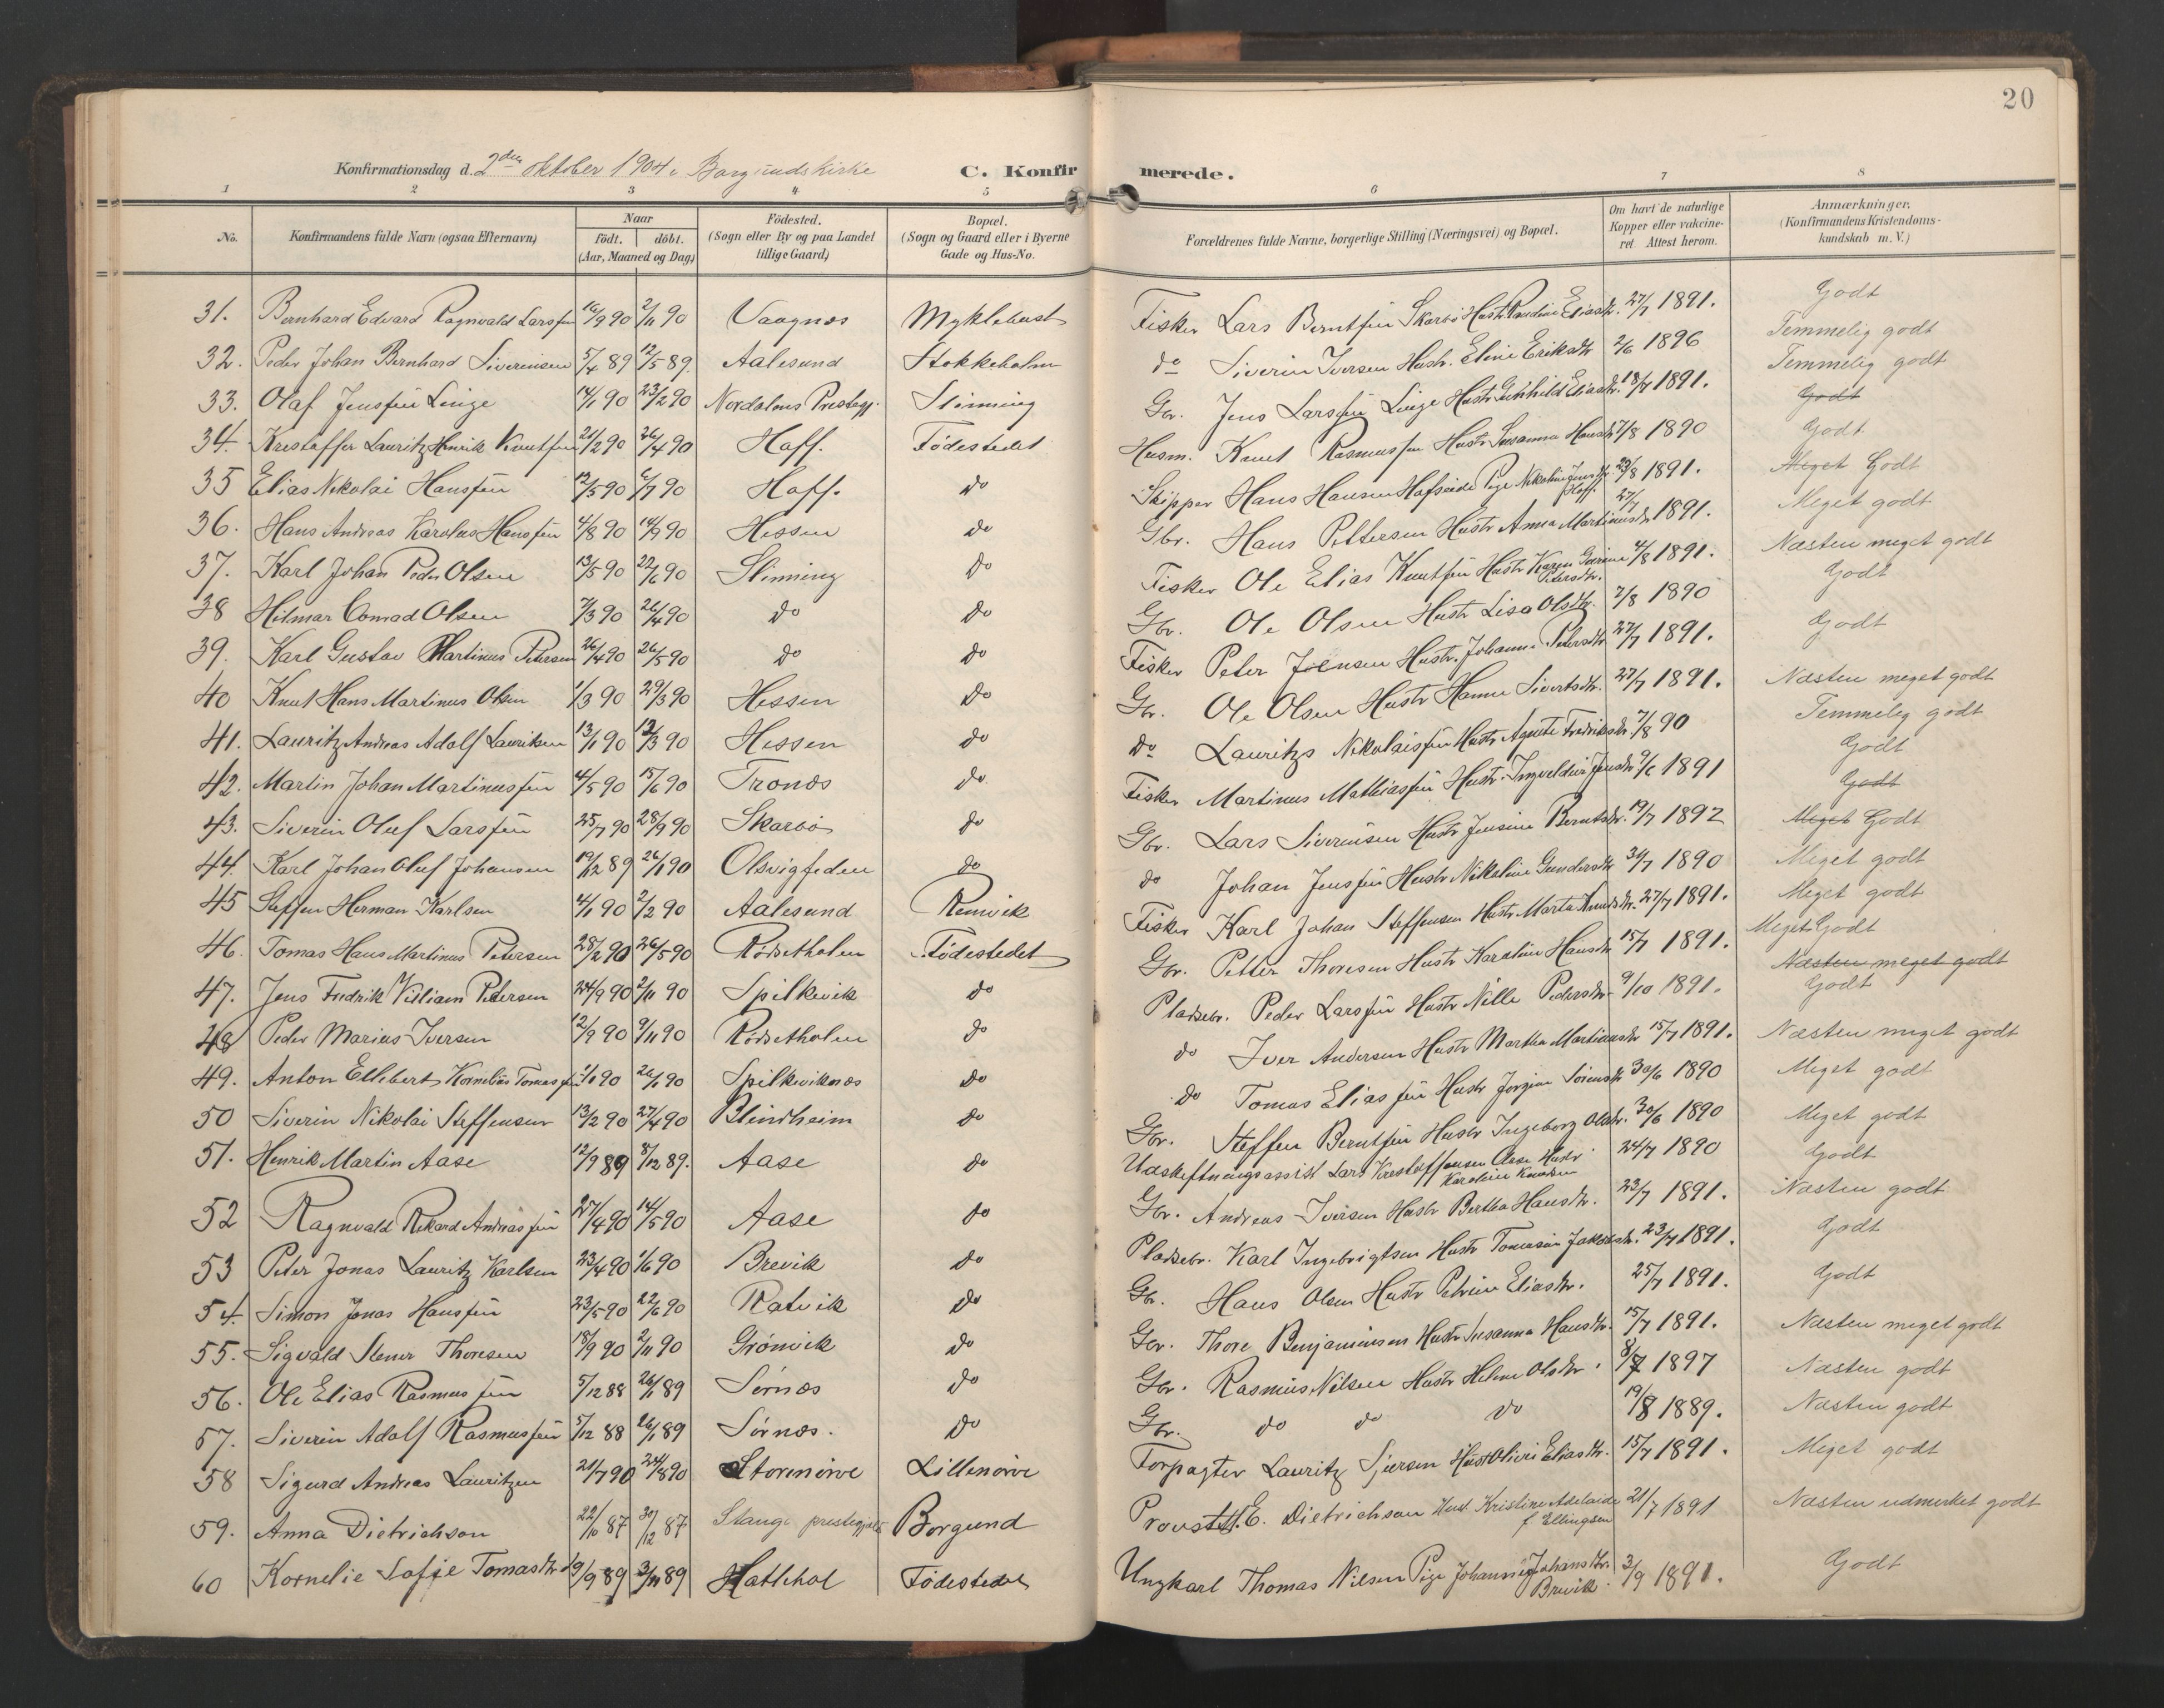 20
Konfirmationsdag d. 2den oktober 1904 i Borgundskirke C. Konfirmerede.
1 2 3 4 5 6 7 8
No. Konfirmandens fulde Navn (ogsaa Efternavn) Naar født. døbt. (Aar, Maaned og Dag) Fødested. (Sogn eller By og paa Landet tillige Gaard) Bopæl. (Sogn og Gaard eller i Byerne Gade og Hus-No. Forældrenes fulde Navne, borgerlige Stilling (Næringsvei) og Bopæl. Om havt de naturlige Kopper eller vakcineret. Attest herom. Anmærkninger. (Konfirmandens Kristendomskundskab m. V.)
31. Bernhard Edvard Ragnvald Larssen 16/9 90 2/11 90 Vaagnæs Myklebust Fisker Lars Berntsen Skarbø Hustr Paudine Eliasdtr. 27/7 1891. Godt
32. Peder Johan Bernhard Siverinsen 5/4 89 12/5 89. Aalesund Stokkeholm do Siverin Iversen Hustr. Eline Eriksdtr 2/6 1896 Temmelig godt
33. Olaf Jenssen Linge 14/1 90 23/2 90 Nordalens Prestegj. Slinning Gbr. Jens Larssen Linge Hustr Eliasdtr. 18/7 1891. Temmelig godt
34. Kristoffer Lauritz Henrik Knutsen 21/2 90 26/4 90 Hoff. Fødestedet Husm. Knut Rasmussen Hustr Susanna Hansdtr 7/8 1890 Godt Godt
35 Elias Nikolai Hanssen 12/5 90 6/7 90 Hoff. do Skipper Hans Hansen Hafseide Pige Nikoline Jensdtr. Hoff. 23/8 1891. Meget Godt
36. Hans Andreas Karolus Hanssen 4/8 90 14/9 90 Hessen do Gbr. Hans Pettersen Hustr Anna Martinusdtr 27/7 1891. Meget godt
37. Karl Johan Peder Olsen 13/5 90 22/6 90 Slinning do Fisker Ole Elias Knutsen Hustr Karen Petersdtr. 4/8 1891. Næsten meget godt
38 Hilmar Conrad Olsen 7/3 90 26/4 90 do do Gbr. Ole Olsen Hustr Lisa Olsdtr. 7/8 1890 Godt
39. Karl Gustav Martinus Petersen 26/4 90 26/5 90 do do Fisker Peter Joensen Hustr. Johanne Petersdtr 27/7 1891. Godt
40 Knut Hans Martinus Olsen 1/3 90 29/3 90 Hessen do Gbr. Ole Olsen Hustr Hanne Sivertsdtr. 27/7 1891. Næsten meget godt
41. Lauritz Andreas Adolf Lauritsen 13/1 90 12/3 90 Hessen do do Lauritzs Nikolaissen Hustr Agnete Fredriksdtr. 7/8 90 Temmelig godt
42. Martin Johan Martinussen 4/5 90 15/6 90 Tronæs do Fisker Martinus Mathiassen Hustr. Ingveldine Jensdtr 9/6 1891 Godt
43. Siverin Oluf Larssen 25/7 90 28/9 90 Skarbø do Gbr. Lars Siverinsen Hustr Jensine Berntsdtr. 19/7 1892 Godt Meget Godt
44. Karl Johan Oluf Johansen 19/12 89 26/1 90 Olsvigfeden do do Johan Jenssen Hustr Nikoline Gundersdtr 31/7 1890 Meget godt
45 Steffen Herman Karlsen 4/1 90 2/2 90 Aalesund Remvik Fisker Karl Johan Steffensen Hustr Marta Knutsdtr. 27/7 1891. Meget godt
46. Tomas Hans Martinus Petersen 28/2 90 26/5 90 Rødsetholen Fødestedet Gbr. Petter Thoresen Hustr Karoline Hansdtr 15/7 1891. Meget Godt
47. Jens Fredrik William Petersen 24/9 90 2/11 90 Spilkevik do Pladsebr. Peder Larssen Hustr Nille Pedersdtr 9/10 1891. Næsten meget godt Godt
48 Peder Marius Iversen 12/9 90 9/11 90 Rødsetholen do do Iver Andersen Hustr Martha Martinusdtr 15/7 1891. Næsten meget godt
49. Anton Ellebert Kornelius Tomassen 1/1 90 26/1 90 Spilkeviknæs do do Tomas Eliassen Hustr Jorgine Sørensdtr 30/6 1890 Meget godt
50 Siverin Nikolai Steffensen 13/2 90 27/4 90 Blindheim do Gbr. Steffen Berntsen Hustr Ingeborg Olsdtr. 30/6 1890 Meget godt
51. Henrik Martin Aase 12/9 89 8/12 89. Aase do Udskiftningsassist Lars Kristoffersen Aase Hustr Karoline Knudsen 24/7 1890 Godt
52 Ragnvald Rikard Andreassen 27/4 90 14/5 90 Aase do Gbr. Andreas Iversen Hustr Bertha Hansdtr. 23/7 1891. Næsten godt
53 Peter Jonas Lauritz Karlsen 23/4 90 1/6 90 Brevik do Pladsebr. Karl Ingebrigtsen Hustr Tomasine Jakobsdtr. 23/7 1891. Godt
54. Simon Jonas Hanssen 23/5 90 22/6 90 Ratvik do Gbr. Hans Olsen Hustr Petrine Eliasdtr. 25/7 1891. Godt
55. Sigvald Stener Thoresen 18/9 90 2/11 90 Grønvik do Gbr. Thore Benjaminsen Hustr Susanna Hansdtr. 15/7 1891. Næsten meget godt
56. Ole Elias Rasmussen 5/12 88 26/1 89 Sørnæs do Gbr. Rasmus Nilsen Hustr Helene Olsdtr. 8/7 1897 Næsten godt
57. Siverin Adolf Rasmussen 5/12 88 26/1 89 Sørnæs. do Gbr. do do do 19/8 1889. Næsten godt
58 Sigurd Andreas Lauritzen 21/7 90 24/8 90 Storenørve Lillenørve Forpagter Lauritz Sjursen Hustr Olivi Eliasdtr. 15/7 1891. Meget godt
59. Anna Dietrichson 22/10 87 30/12 87 Stange prestegjæld Borgund Provst E. Dietrichson Hust. Kristine Adelaide f. Ellingsen 21/7 1891 Næsten udmerket godt
60 Kornelie Sofie Tomasdtr 19/9 89 3/11 89 Hatlehol Fødestedet Ungkarl Thomas Nilsen Pige Johansdtr. Brevik 3/9 1891. Godt